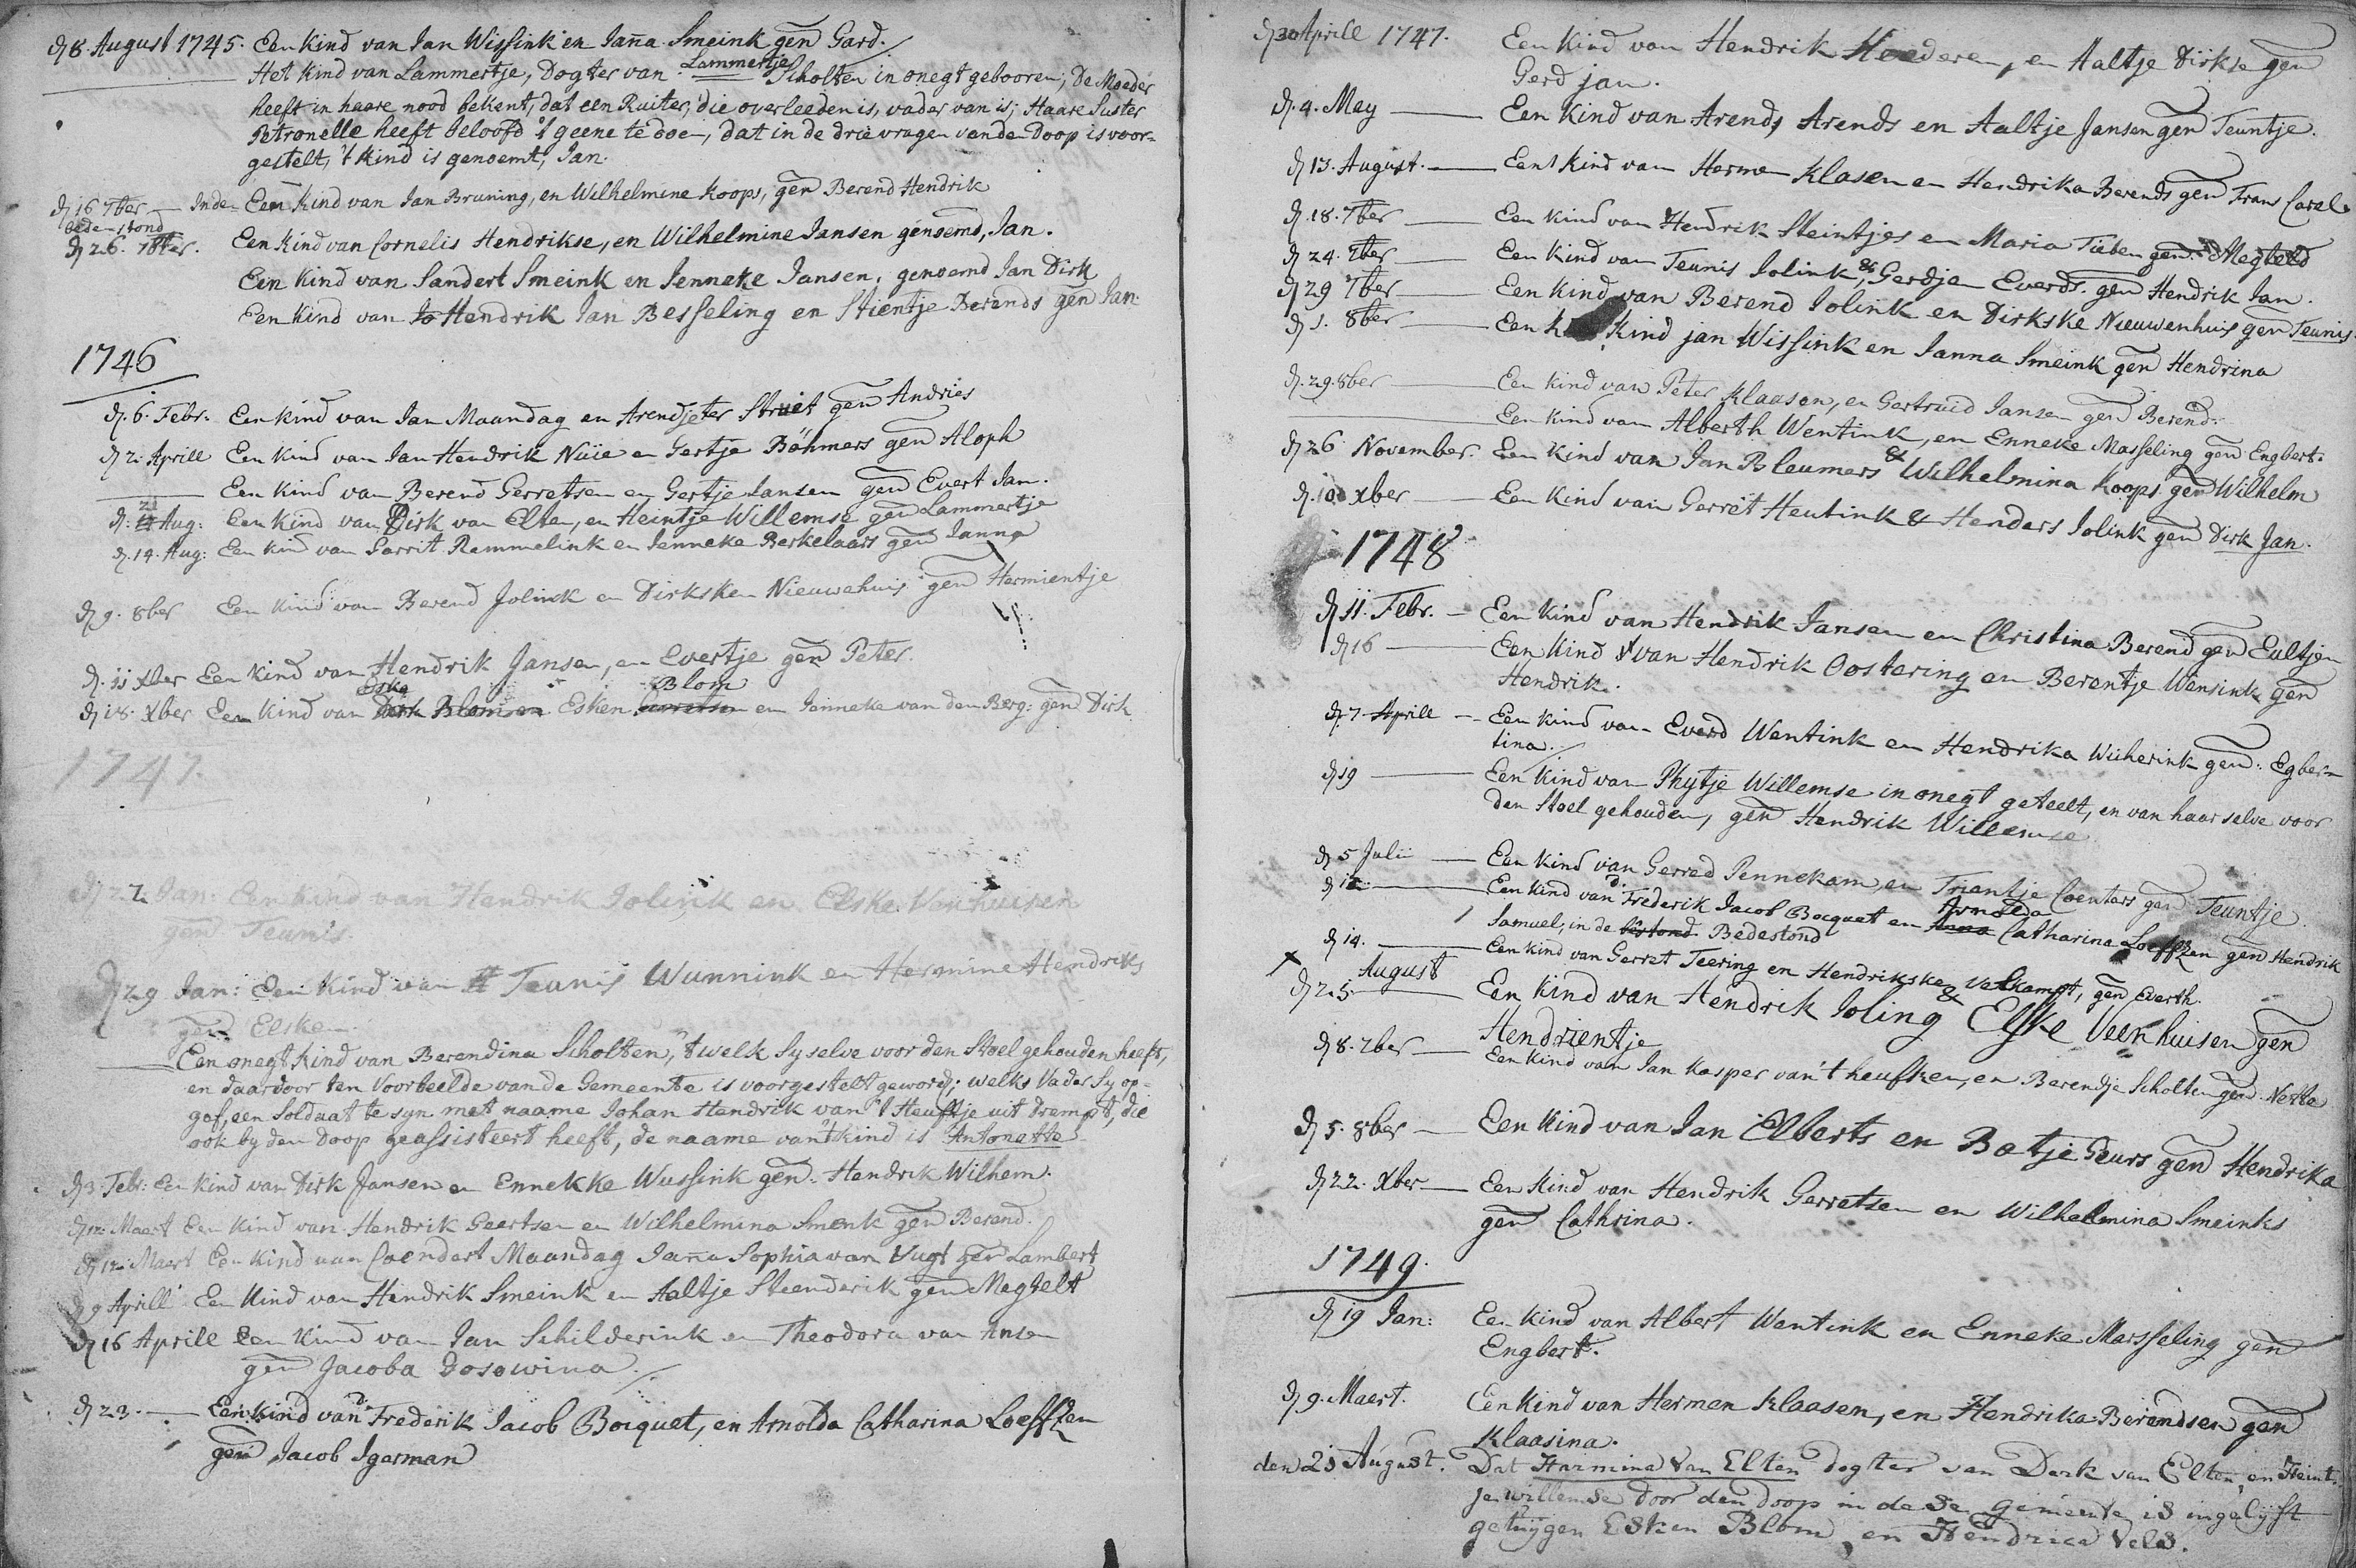 d 8. August 1745. Een Kind van Jan Wissink en Janna Smeink gen Gard:
Het Kind van Lammertje, Dogter van Lammertje Scholten in onegt gebooren; De Moeder
heeft in haare nood bekent, dat een Ruiter, die overleeden is, vader van is; Haare Suster
Petronelle heeft beloofd 't geene te doen, dat in de drie vragen van de Doop is voor-
gestelt, 't Kind is genoemt, Jan.
d 16 7ber — Inde Een Kind van Jan Bruning, en Wilhelmine Koops, gen Berend Hendrik
bedenstond
d 26. 7ber. Een Kind van Cornelis Hendrikse, en Wilhelmine Jansen genoemd, Jan.
Een Kind van Sandert Smeink en Jenneke Jansen, genoemd Jan Dirk
Een Kind van Jo Hendrik Jan Besseling en Stientje Berends gen Jan
1746
d. 6. Febr. Een Kind van Jan Maandag en Arendjeter Struet gen Andries
d 2. Aprill Een Kind van Jan Hendrik Nüie en Gertje Böhmers gen Aloph
Een Kind van Berend Gerretsen en Gertje Jansen gen Evert Jan.
d. 21 Aug: Een Kind van Dirk van Elten, en Heintje Willemse gen Lammertje
d. 14. Aug: Een Kind van Garrit Remmelink en Jenneke Berkelaars gen Janna
d 9. 8ber Een Kind van Berend Jolink en Dirksken Nieuwehuis gen Hermientje
d. 11 Xber Een Kind van Hendrik Jansen, en Evertje gen Peter.
d 18. Xber Een Kind van Eske Dirk Blom en Esken Blom Gerretsen en Janneke van den Berg: gen Dirk
1747.
d 22 Jan: Een Kind van Hendrik Jolink en Elske Venhuisen
gen Teunis.
d 29 Jan: Een Kind van Teunis Wunnink en Hermine Hendriks
gen Elsken
Een onegt Kind van Berendina Scholten, 't welk sy selve voor den Stoel gehouden heeft,
en daardoor ten Voorbeelde van de Gemeente is voorgestelt geword; welks Vader sy op-
gaf, een Soldaat te syn met naame Johan Hendrik van 't Heuftje uit Drempt, die
ook by den Doop geassisteert heeft, de naame van 't kind is Antonette
d 3. Febr: Een Kind van Dirk Jansen en Ennekke Wussink gen. Hendrik Wilhem.
d 12: Maert Een Kind van Hendrik Geertsen en Wilhelmina Smenk gen Berend.
d 12: Maert Een Kind van Coendert Maandag Janna Sophia van Vugt gen Lambert
d 9 Aprill Een Kind van Hendrik Smeink en Aaltje Steenderik gen Megtelt
d 16 Aprill Een Kind van Jan Schilderink en Theodora van Ansen
gen Jacoba Dosowina.
d 23. — Een Kind van d: Frederik Jacob Bocquet, en Arnolda Catharina Loeffzen
gen Jacob Igerman
d 30 Aprill 1747. Een Kind van Hendrik Hoederen, en Aaltje Dirkse gen
Gerd jan.
d. 4. May — Een Kind van Arends Arends en Aaltje Jansen gen Teuntje.
d 13. August. — Een Kind van Herman Klasen en Hendrika Berends gen Frans Carel
d. 18. 7ber — Een Kind van Hendrik Steintjes en Maria Tieben gen Megteld
d 24. 7ber — Een Kind van Teunis Jolink, & Gerdjen Everds. gen Hendrik Jan.
d 29 7ber — Een Kind van Berend Jolink en Dirkske Nieuwenhuis gen Teunis.
d 1. 8ber — Een Kind jan Wissink en Janna Smeink gen Hendrina
d. 29. 8ber — Een Kind van Peter Klaason, en Gertruid Jansen gen Berend.
Een Kind van Alberth Wentink, en Enneke Masseling gen Engbert.
d 26 November. Een Kind van Jan Bleumers & Wilhelmina Koops gen Wilhelm
d. 10 Xber — Een Kind van Gerret Heutink & Henders Jolink gen Dirk Jan.
1748
d 11. Febr. — Een Kind van Hendrik Jansen en Christina Berend gen Eultjen
d 16 — Een Kind van Hendrik Oostering en Berentje Wensink gen
Hendrik.
d. 7 Aprill — Een Kind van Everd Wentink en Hendrika Wicherink gen: Egber-
tina.
d 19 — Een Kind van Phytje Willemse in onegt geteelt, en van haar selve voor
den Stoel gehouden, gen Hendrik Willemse
d 5 Julii — Een Kind van Gerred Pennekam, en Trientje Coenders gen Teuntje.
d 12 — Een Kind van d: Frederik Jacob Bocquet en Arnolda Anna Catharina Loeffzen gen Hendrik
Samuel, in de Bedestond
d 14. — Een Kind van Gerret Teering en Hendriksken Velkampt, gen Everth.
August
d 25 — Een Kind van Hendrik Joling & Elske Veenhuisen gen
Hendrientje
d 8. 7ber — Een Kind van Jan Kasper van 't heufken, en Berendje Scholten gen. Netta
d 5. 8ber — Een Kind van Jan Elberts en Batje Geurs gen Hendrika
d 22. Xber — Een Kind van Hendrik Gerretsen en Wilhelmina Smeinks
gen Cathrina.
1749.
d 19 Jan: Een Kind van Albert Wentink en Enneke Marsseling gen
Engbert.
d 9. Maert. Een Kind van Herman Klaasen, en Hendrika Berendsen gen
Klaasina.
den 25 August. Dat Harmina Van Elten dogter van Derk van Elten, en Heint-
je willemse door den doop in dese gemeente is ingelyft
getuijgen Esken Blom, en Hendrica Vels.